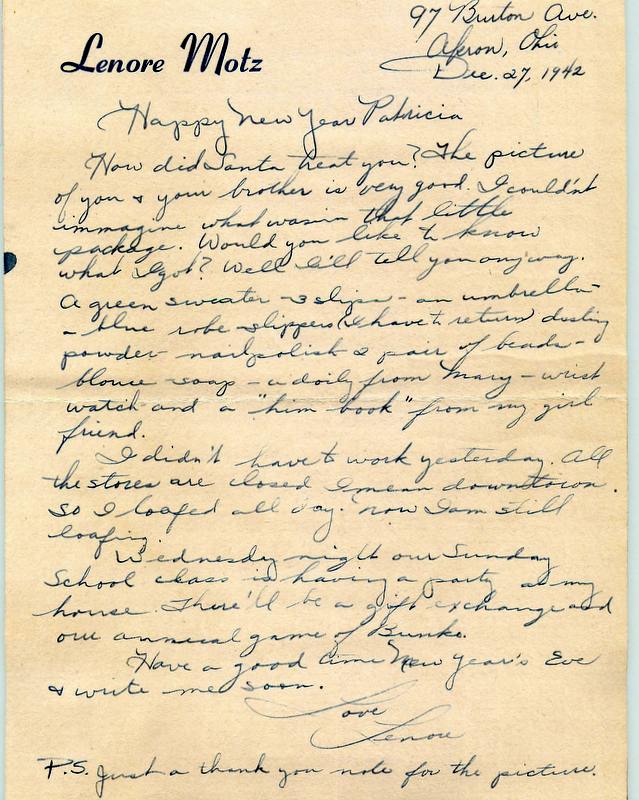 97 Burton Ave.
Lenore Motz
Akron, Ohio
Dec. 27, 1942
Happy New Year Patricia
How did Santa treat you? The picture
of you & your brother is very good. I couldn't
immagine what was in that little
package. Would you like to know
what I got? Well I'll tell you anyway.
A green sweater - 3 slips - an umbrella -
- blue robe - slippers (I have to return) dusting
powder - nailpolish 2 pair of beads -
blouse - soap - a doily from Mary - wrist
watch and a "him book" from my girl
friend.
I didn't have to work yesterday. All
the stores are closed I mean downtown.
So I loafed all day. Now I am still
loafing.
Wednesday night our Sunday
School class is having a party at my
house. There'll be a gift exchange and
our annual game of Bunko.
Have a good time New Year's Eve
& write me soon.
Love
Lenore
P.S. Just a thank you note for the picture.